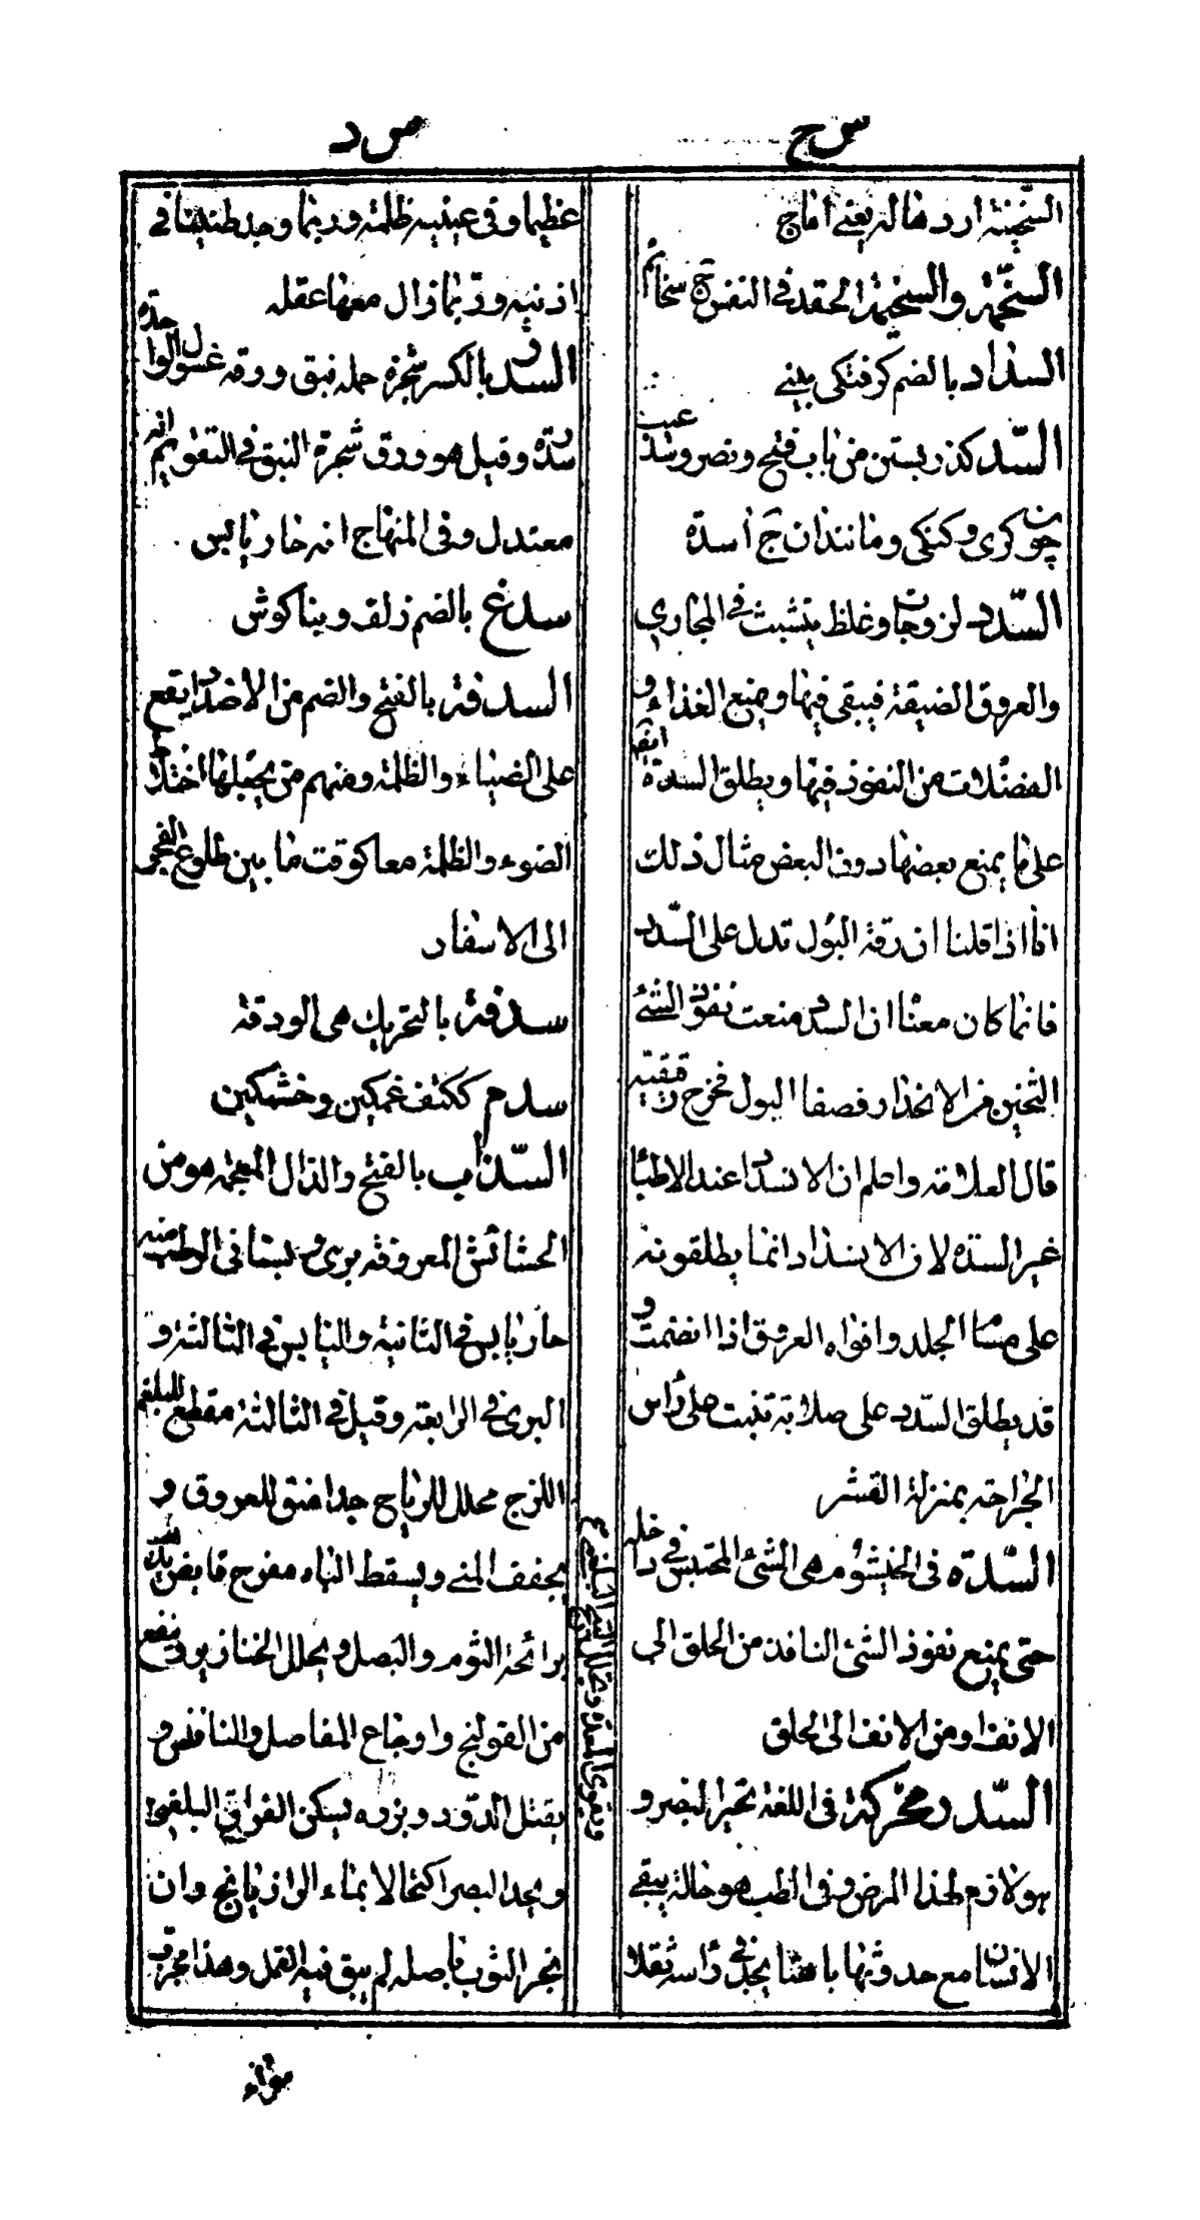 س ح
السخينة ارد هاله يعني اماج
السخمة والسخيمة الحقد في النفس ج سخائم
السداد بالضم كرفتكى بينے
السّد كذر بستن من باب فتح و نصر و سد عيب
چون كرى و كنكى و مانند ان ج اسدة
السّدد لزوجات و غلظ يتشبث في المجاري
والعروق الضيقة فيبقى فيها و يمنع الغذاء و
الفضلات من النفوذ فيها و يطلق السدة ايضا
على ما يمنع بعضها دون البعض مثال ذلك
انا اذا قلنا ان رقة البول تدل على السّدد
فانما كان معنا ان السدد منعت نفوذ الشئ
الثخين من الانحدار فصفا البول فخرج رقيقه
قال العلامة واعلم ان الانسداد عند الاطبا
غير السدة لان الانسداد انما يطلقونه
على مسا الجلد و افواه العروق اذا انضمت و
قد يطلق السّدد على صلابة تنبت على راس
الجراحة بمنزلة القشر
السّدّة في الخيشوم هى الشئ المحتبس في داخله
حتى يمنع نفوذ الشئ النافذ من الحلق الى
الانف و من الانف الى الحلق
السّدر محركة في اللغة تحير البصر و
هو لازم لهذا المرض و في الطب هو حالة يبقے
الانسان مع حدوثها باهتا يجد في راسه ثقلا
ص د
عظيما و في عينيه ظلمة و ربما وجد طنينا في
اذنيه و ربما زال معها عقله
السدر بالكسر شجرة حمله نبق و ورقه غسول الواحدة
سدرة و قيل هو ورق شجرة النبق في التقويم انه
معتدل و في المنهاج انه حار يابس
سدغ بالضم زلف و بناكوش
السدفة بالفتح والضم من الاضداد يقع
على الضياء والظلمة و منهم من يجعلها اختلاط
الضوء والظلمة معا كوقت ما بين طلوع الفجر
الى الاسفار
سدفة بالتحريك هى الودقة
سدم ككتف غمكين و خشمكين
السّذاب بالفتح والذال المعجمة هو من
الحشائش المعروفة برى و بستانى الرطب منه
حار يابس في الثانية واليابس في الثالثة و
البرى في الرابعة و قيل في الثالثة مقطع للبلغم
اللزج محلل للرياح جدا منق للعروق و
يجفف المنى و يسقط الباه مفرح قابض يذهب
برائحة الثوم والبصل و يحلل الخنازير و ينفع
من القولنج و اوجاع المفاصل والنافض و
يقتل الدود و بزره يسكن الفواق البلغمى
و يحد البصر اكتحالا بماء الرازيانج و ان
بخر الثوب باصله لم يبق فيه القمل و هذا مجرب